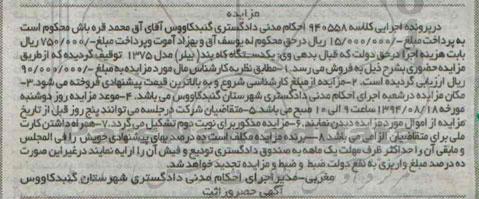 مزایده
درپرونده اجرایی کلاسه ۹۴۰۵۵۸ احکام مدنی دادگستری گنبدکاووس آقای آق محمد قره باش محکوم است
به پرداخت مبلغ -/۱۵/۰۰۰/۰۰۰ ریال درحق محکوم له یوسف آق و بهزاد آموت وپرداخت مبلغ -/۷۵۰/۰۰۰ ریال
بابت هزینه اجرا درحق دولت که قبال بدهی وی: یکدستگاه کاه بند (بیلر) مدل ۱۳۷۵ توقیف گردیده که ازطریق
مزایده حضوری بشرح ذیل به فروش می رسد ۱-مطابق نظریه کارشناس مال مورد مزایده به مبلغ -/۹۰/۰۰۰/۰۰۰
ریال ارزیابی گردیده است. ۲-مزایده ازمبلغ کارشناسی شروع و به بالاترین قیمت پیشنهادی فروخته می شود. ۳-
مکان مزایده در شعبه اجرای احکام مدنی دادگستری شهرستان گنبدکاووس می باشد. ۴-موعد مزایده روز دوشنبه
مورخه ۱۳۹۴/۰۸/۱۸ ساعت ۹ الی ۱۰ صبح می باشد ۵-متقاضیان شرکت در جلسه می توانند پنج روز قبل از تاریخ
مزایده از اموال مورد مزایده دیدن نمایند. ۶-مزایده مذکور برای نوبت دوم تشکیل می گردد. ۷-همراه داشتن کارت
ملی برای متقاضیان الزامی می باشد. ۸-برنده مزایده مکلف است ده درصد بهای پیشنهادی خویش را فی المجلس
و مابقی آن را حداکثر ظرف مهلت یک ماهه به صندوق دادگستری تودیع و فیش آن را ارایه نمایند درغیراین صورت
ده درصد مبلغ واریزی به نفع دولت ضبط و مزایده تجدید خواهد شد.
مغربی-مدیراجرای احکام مدنی دادگستری شهرستان گنبدکاووس
آگهی حصروراثت